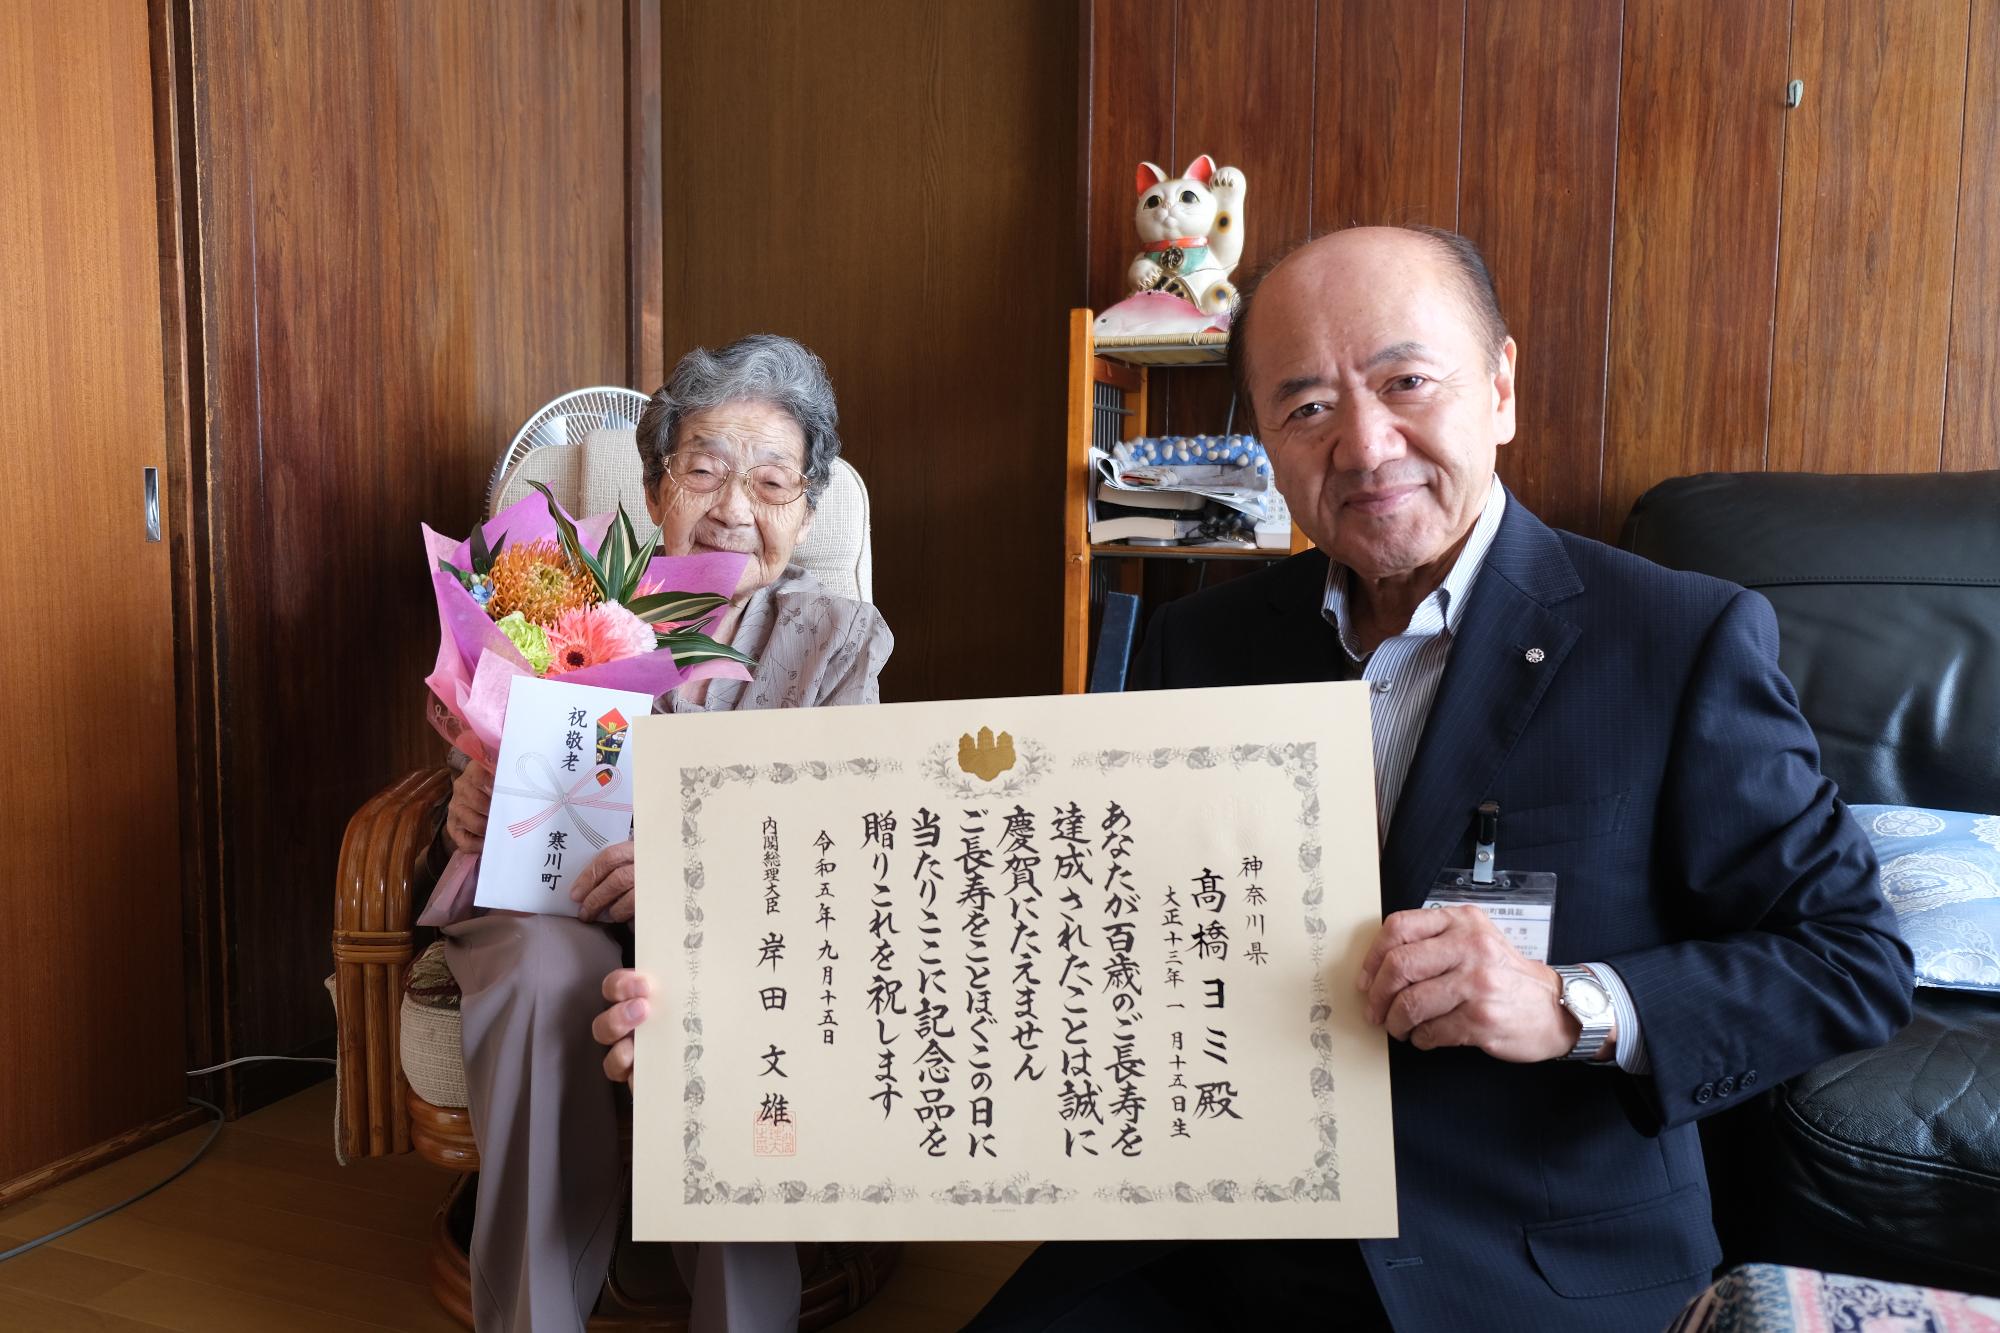 祝敬老
寒川町
神奈川県
髙橋ヨミ殿
大正十三年一月十五日生
あなたが百歳のご長寿を
達成されたことは誠に
慶賀にたえません
ご長寿をことほぐこの日に
当たりここに記念品を
贈りこれを祝します
令和五年九月十五日
内閣総理大臣 岸田文雄
川町職員証